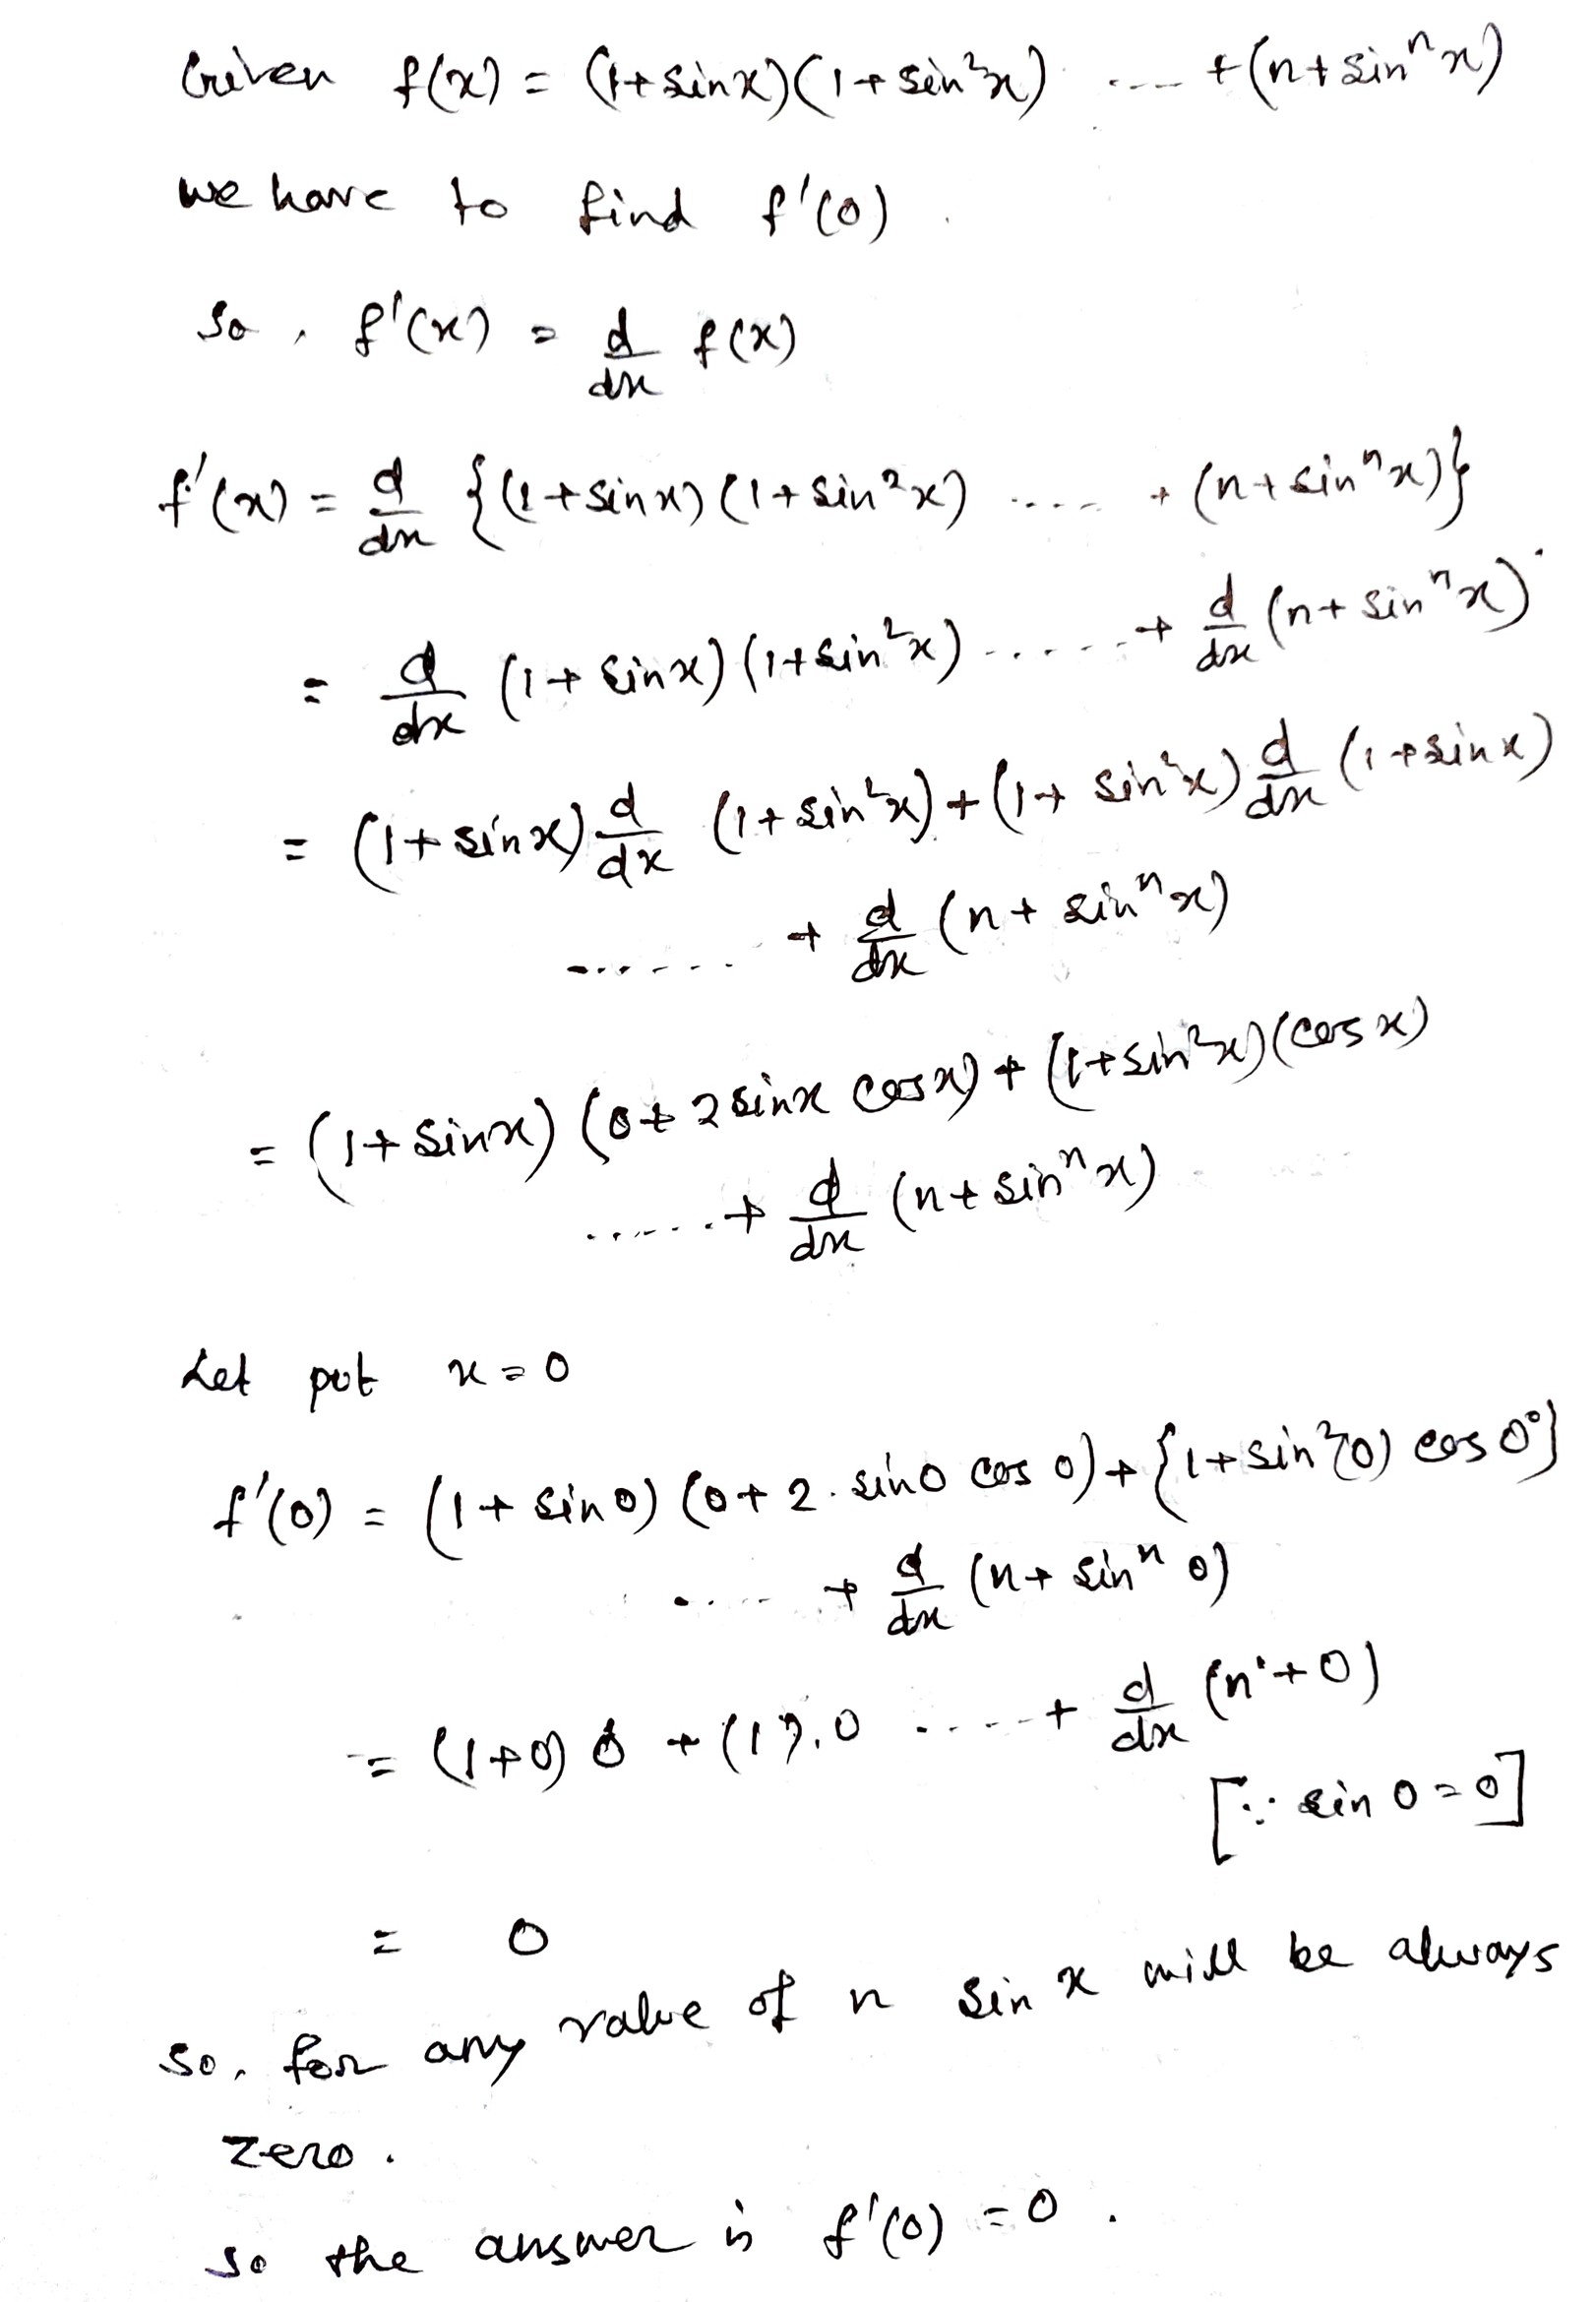 Given f(x) = (1+sinx)(1+sin²x) .... +(n+sinⁿx)
we have to find f'(0).
So, f'(x) = d/dx f(x)
f'(x) = d/dx {(1+sinx)(1+sin²x) .... + (n+sinⁿx)}
= d/dx (1+sinx)(1+sin²x) ...... + d/dx (n+sinⁿx)
= (1+sinx) d/dx (1+sin²x) + (1+sin²x) d/dx (1+sinx)
....... + d/dx (n+sinⁿx)
= (1+sinx) (0+2sinx cosx) + (1+sin²x)(cosx)
...... + d/dx (n+sinⁿx)
Let put x=0
f'(0) = (1+sin0) (0+2.sin0 cos0) + {1+sin²0) cos0°}
..... + d/dx (n+sinⁿ0)
= (1+0) 0 + (1).0 ..... + d/dx (n+0)
[∵ sin0=0]
= 0
So, for any value of n sinx will be always
zero.
So the answer is f'(0) = 0.